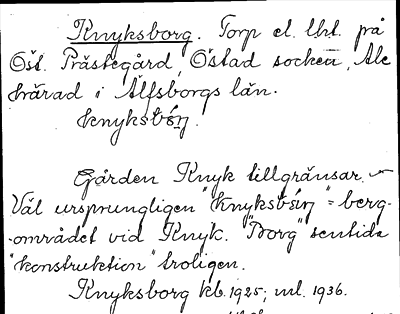 Knyksborg. Torp el. lht. på
Öst. Prästegård, Östad socken, Ale
härad i Älfsborgs län.
knyksbǻrj.
Gården Knyk tillgränsar. –
Väl ursprungligen "knyksbǻrj" = berg-
-området vid Knyk. "Borg" sentida
"konstruktion" troligen.
Knyksborg kb. 1925; ml. 1936.